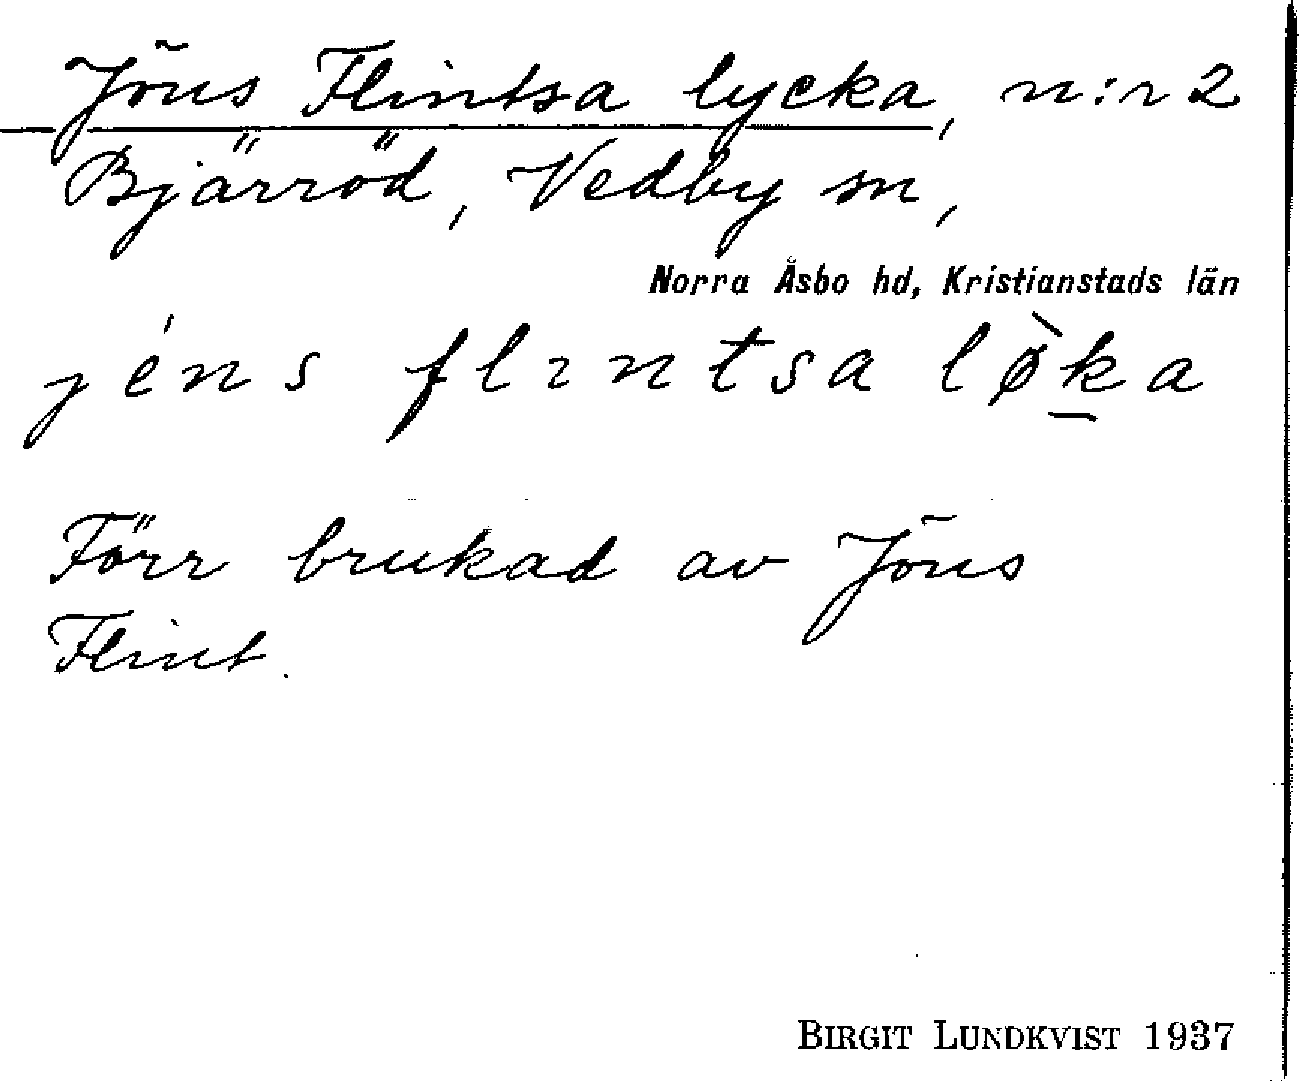 Jöns Flintsa lycka, n:r 2
Bjärröd, Vedby sn,
Norra Åsbo hd, Kristianstads län
jéns flıntsa lø̀ḵa
Förr brukad av Jöns
Flint.
BIRGIT LUNDKVIST 1937